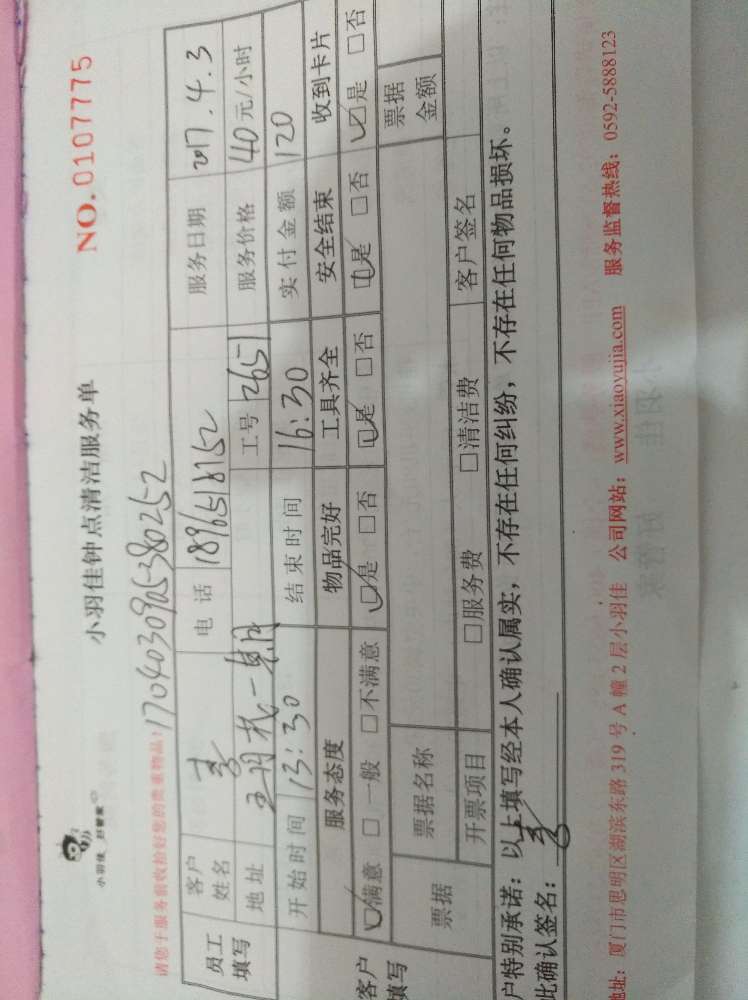 小羽佳 好管家
小羽佳钟点清洁服务单 NO.0107775
请您于服务前收拾好您的贵重物品: 1704030905380252
员工填写 客户姓名 李 电话 18965181152 服务日期 2017.4.3
地址 一期 工号 2651 服务价格 40元/小时
开始时间 13:30 结束时间 16:30 实付金额 120
客户填写 服务态度 物品完好 工具齐全 安全结束 收到卡片
☑满意 □一般 □不满意 ☑是 □否 ☑是 □否 ☑是 □否 ☑是 □否
票据 票据名称 票据金额
开票项目 □服务费 □清洁费 客户签名
户特别承诺:以上填写经本人确认属实,不存在任何纠纷,不存在任何物品损坏。
此确认签名: 李
地址: 厦门市思明区湖滨东路 319 号 A 幢 2 层小羽佳 公司网站: www.xiaoyujia.com 服务监督热线: 0592-5888123